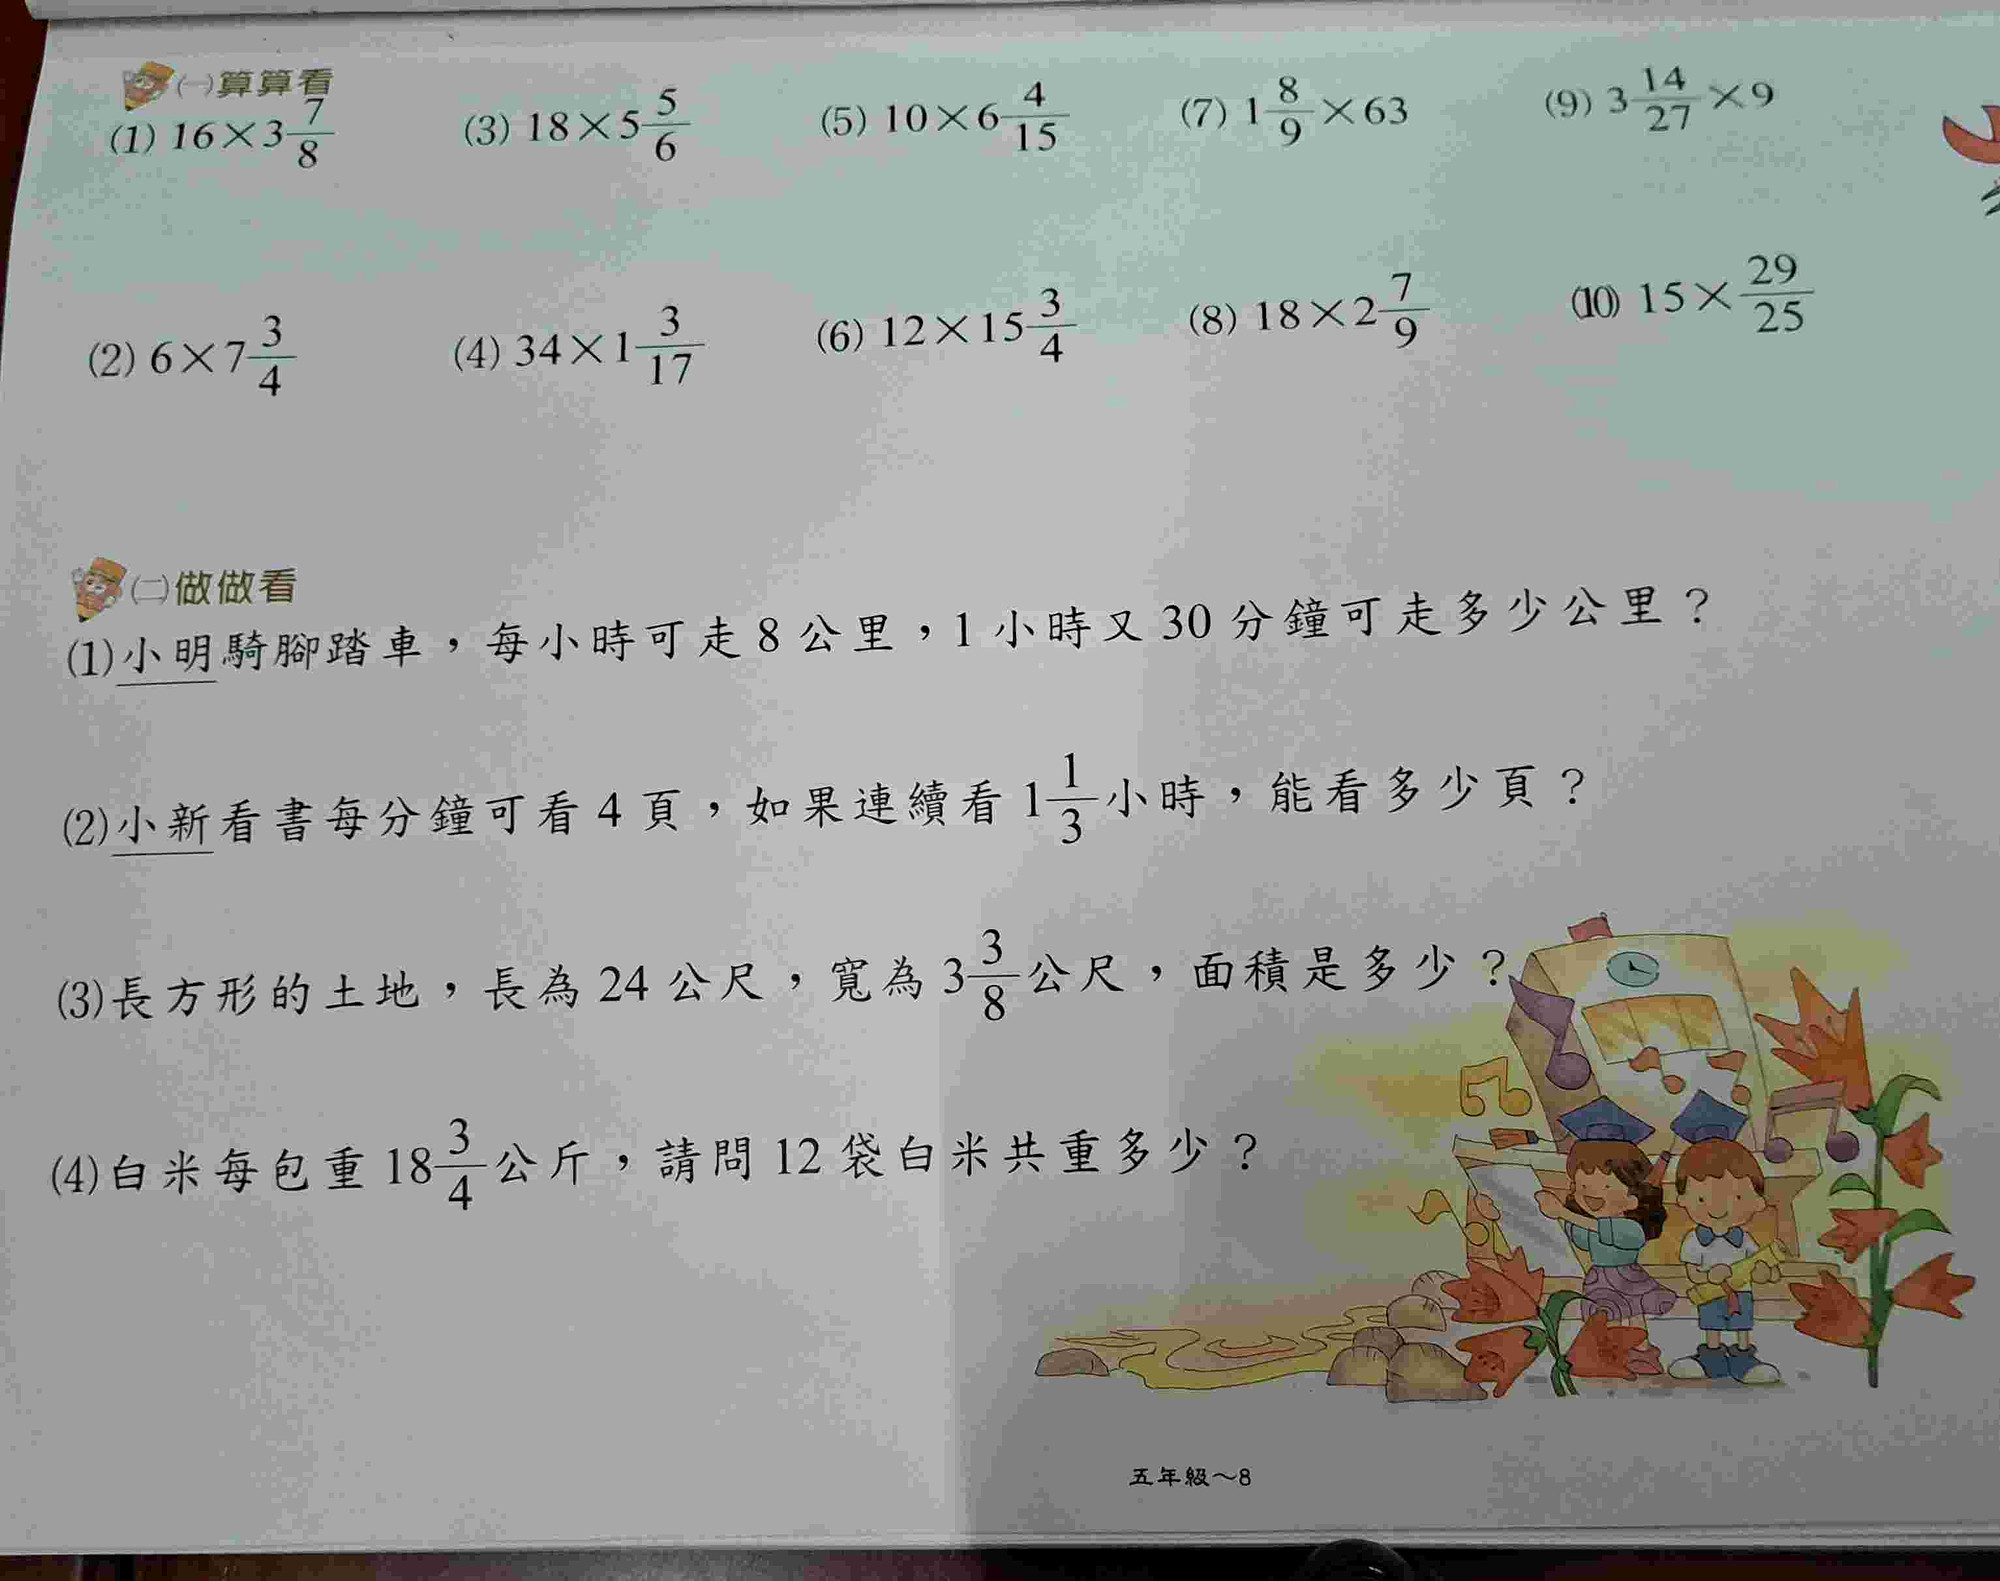 ㈠算算看
(1) 16×3 7/8
(3) 18×5 5/6
(5) 10×6 4/15
(7) 1 8/9×63
(9) 3 14/27×9
(2) 6×7 3/4
(4) 34×1 3/17
(6) 12×15 3/4
(8) 18×2 7/9
(10) 15×29/25
㈡做做看
(1)小明騎腳踏車，每小時可走8公里，1小時又30分鐘可走多少公里？
(2)小新看書每分鐘可看4頁，如果連續看1 1/3小時，能看多少頁？
(3)長方形的土地，長為24公尺，寬為3 3/8公尺，面積是多少？
(4)白米每包重18 3/4公斤，請問12袋白米共重多少？
五年級～8